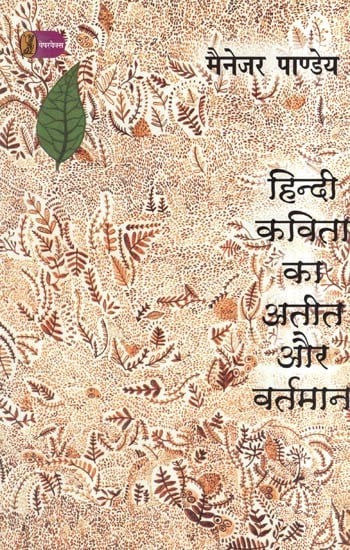 पेपरबैक्स
मैनेजर पाण्डेय
हिन्दी
कविता
का
अतीत
और
वर्तमान